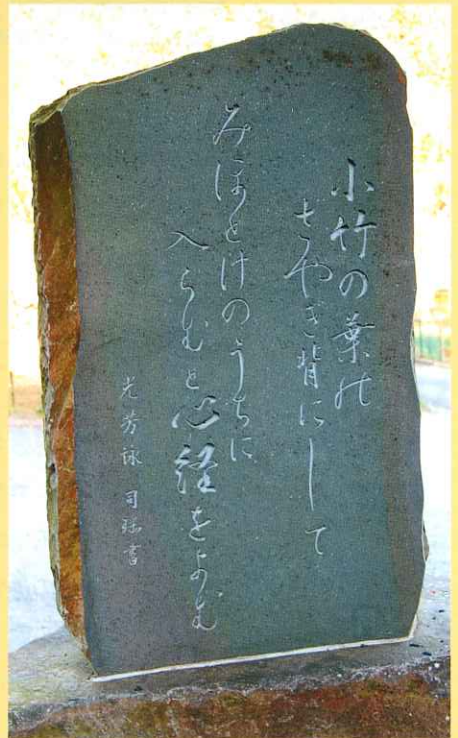 小竹の葉の
さやぎ背にして
みほとけのうちに
入らむと心経をよむ
光芳詠 司
書